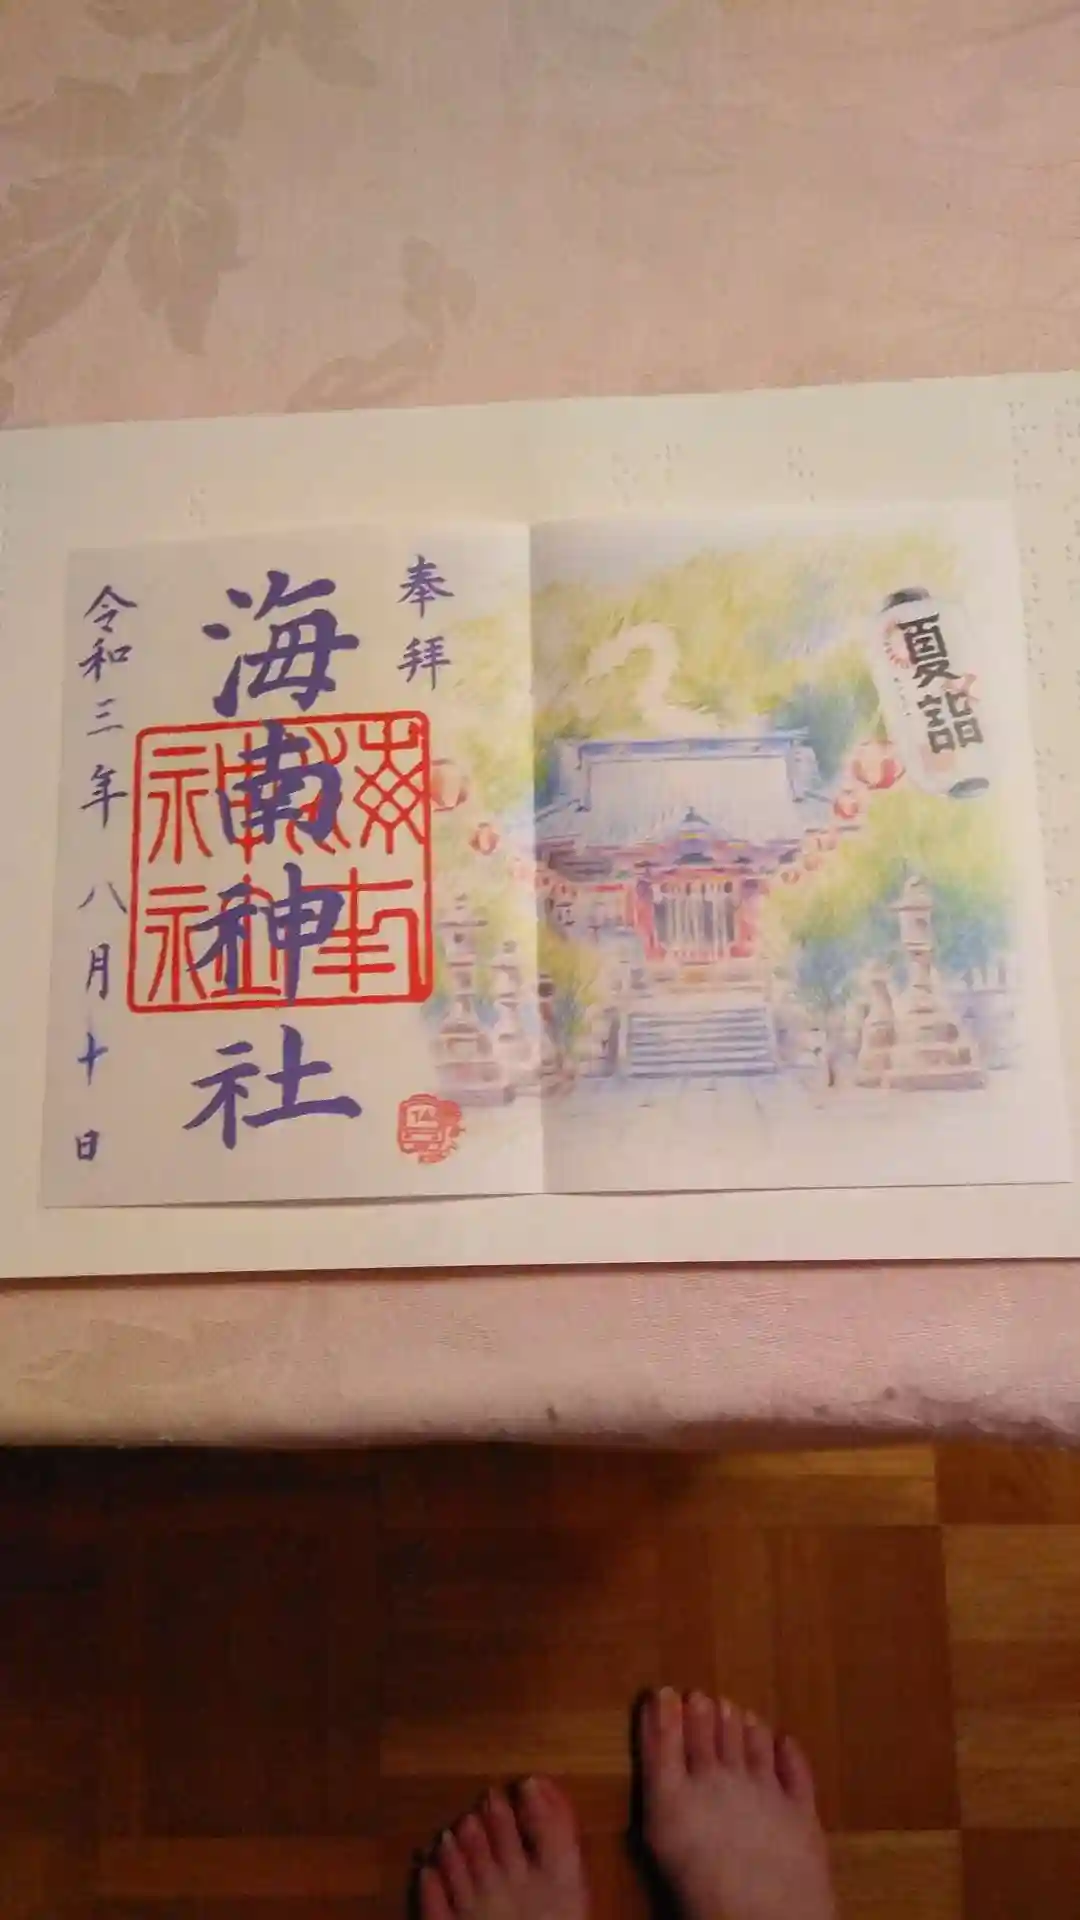 夏詣
奉拝
海南神社
令和三年八月十日